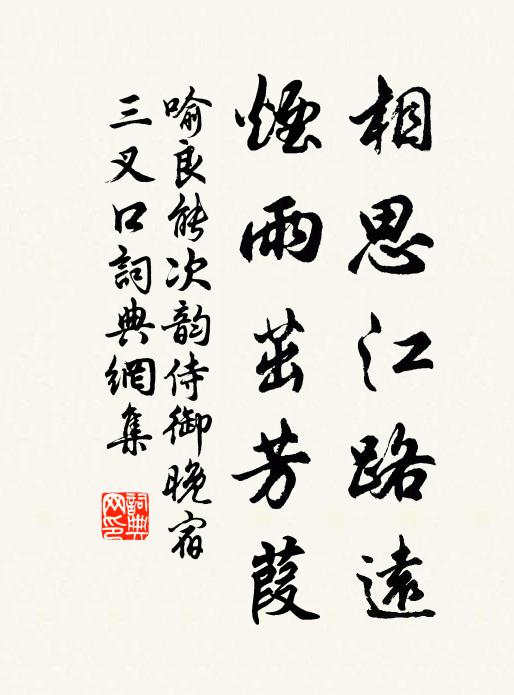 相思江路遠
煙雨茁芳葭
喻良能次韵侍御晚宿
三叉口詞典網集
詞典网印